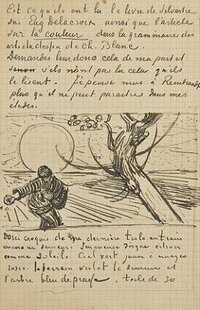 Est ce qu'ils ont lu le livre de Silvestre
sur Eug Delacroix ainsi que l'article
sur la couleur dans la grammaire des
arts du dessin de Ch. Blanc.
Demandes leur donc cela de ma part et
sinon s'ils n'ont pas lu cela qu'ils
le lisent. j'pense moi à Rembrandt
plus qu'il ne peut paraître dans mes
études.
Voici croquis de ma dernière toile en train
encore un semeur. Immense disque citron
comme soleil. Ciel vert jaune à nuages
roses. le terrain violet le semeur et
l'arbre bleu de prusse. toile de 30